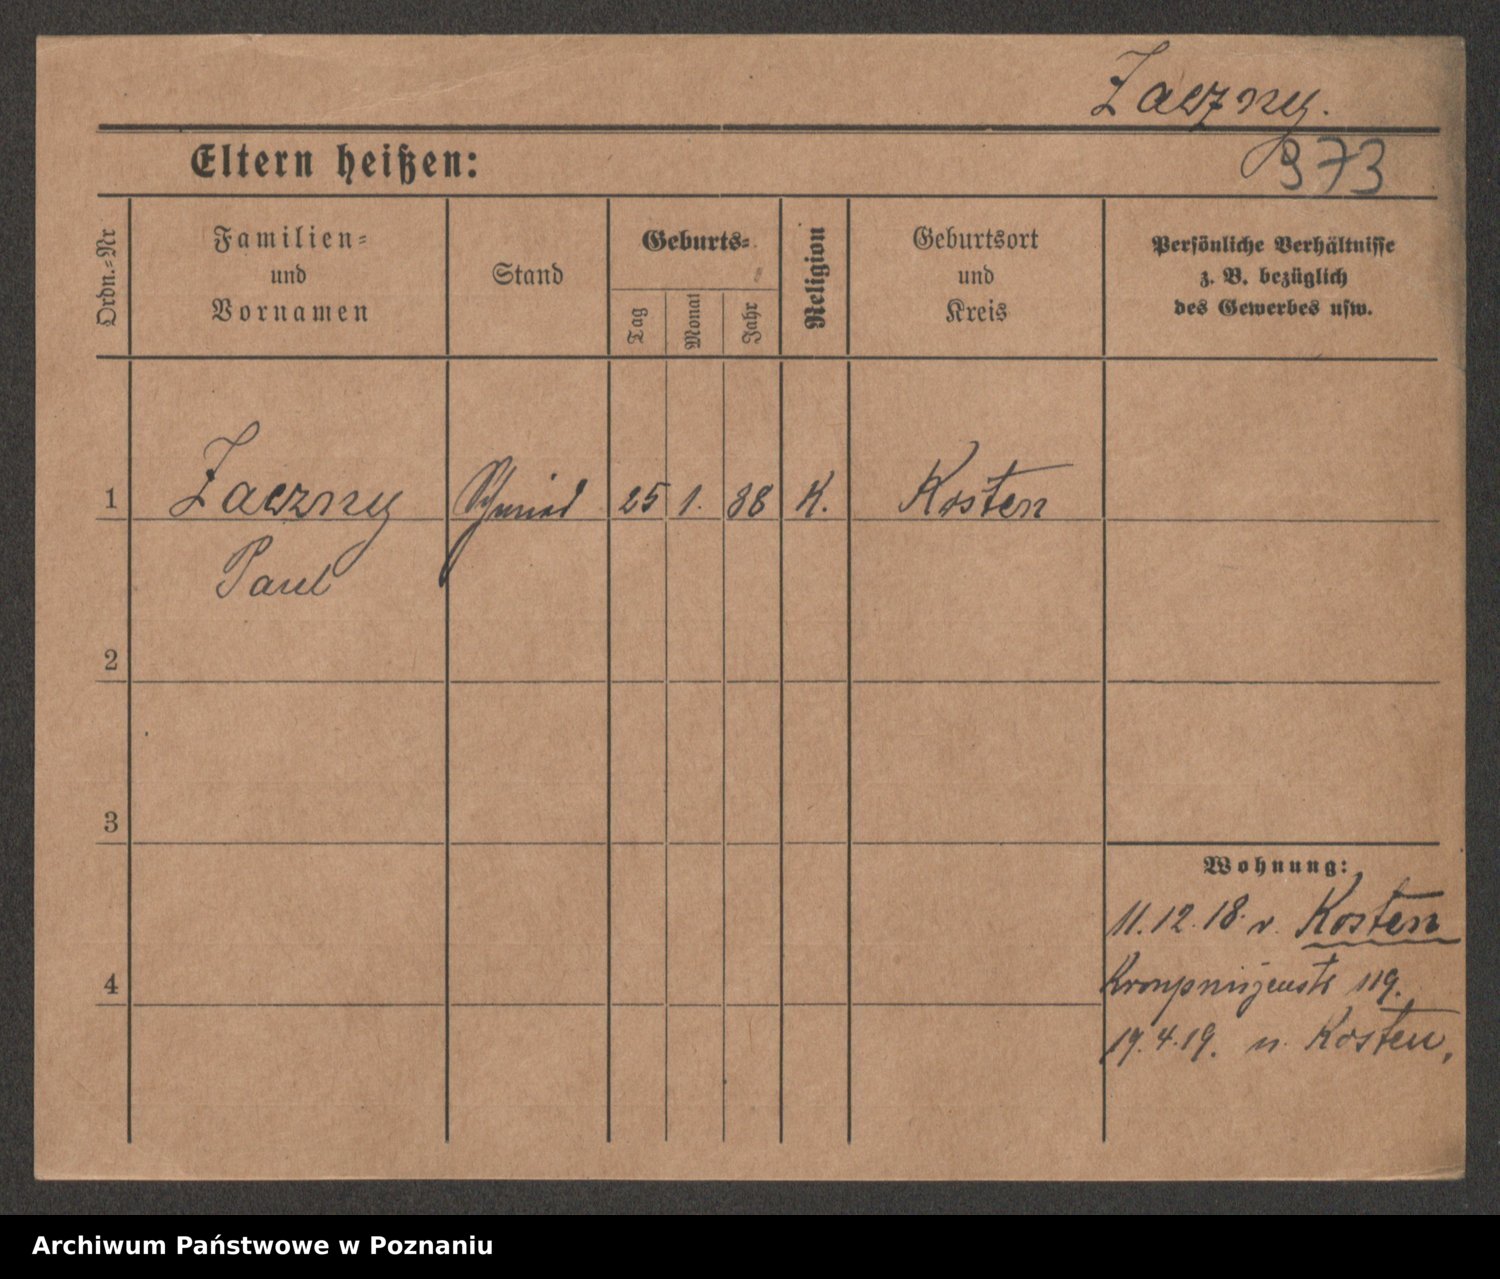 Zaczny.
Eltern heißen:
373
Ordn.=Nr
Familien=
und
Vornamen
Stand
Geburts=
Tag
Monat
Jahr
Religion
Geburtsort
und
Kreis
Persönliche Verhältnisse
z. B. bezüglich
des Gewerbes usw.
1 Zaczny Schmied 25 1. 88 K. Kosten
Paul
2
3
Wohnung:
11.12.18. v. Kosten
4
Kronprinzenstr 119.
19.4.19. n. Kosten.
Archiwum Państwowe w Poznaniu